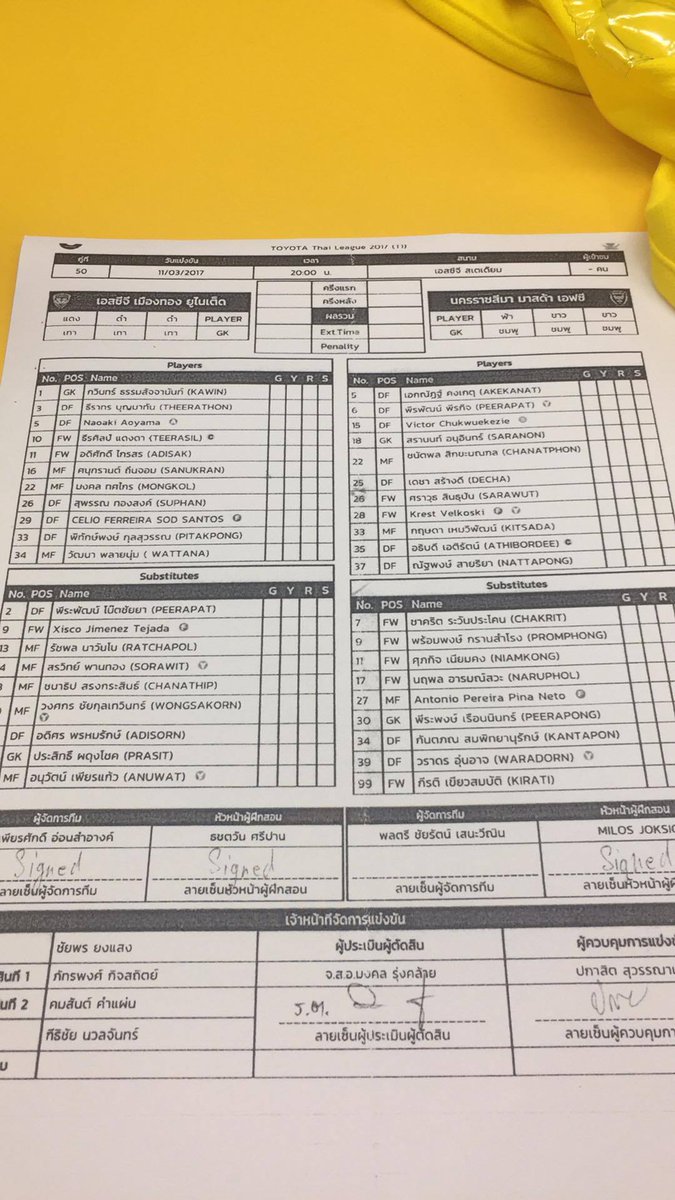 TOYOTA Thai League 2017 (T1)
คู่ที่ วันแข่งขัน เวลา สนาม ผู้เข้าชม
50 11/03/2017 20:00 น. เอสซีจี สเตเดียม - คน
เอสซีจี เมืองทอง ยูไนเต็ด
แดง ดำ ดำ PLAYER
เทา เทา เทา GK
ครึ่งแรก
ครึ่งหลัง
ผลรวม
Ext Time
Penality
นครราชสีมา มาสด้า เอฟซี
PLAYER ฟ้า ขาว ขาว
GK ชมพู ชมพู ชมพู
Players
No. POS Name G Y R S
1 GK กวินทร์ ธรรมสัจจานันท์ (KAWIN)
3 DF ธีราทร บุญมาทัน (THEERATHON)
5 DF Naoaki Aoyama A
10 FW ธีรศิลป์ แดงดา (TEERASIL) C
11 FW อดิศักดิ์ ไกรษร (ADISAK)
16 MF ศนุกรานต์ ถิ่นจอม (SANUKRAN)
22 MF มงคล ทศไกร (MONGKOL)
26 DF สุพรรณ ทองสงค์ (SUPHAN)
29 DF CELIO FERREIRA SOD SANTOS F
33 DF พิทักษ์พงษ์ กุลสุวรรณ (PITAKPONG)
34 MF วัฒนา พลายนุ่ม ( WATTANA)
Players
No. POS Name G Y R S
5 DF เอกณัฏฐ์ คงเกตุ (AKEKANAT)
6 DF พีรพัฒน์ พีรกิจ (PEERAPAT) Y
15 DF Victor Chukwuekezie
18 GK สรานนท์ อนุอินทร์ (SARANON)
22 MF ชนัตพล สิกขะมณฑล (CHANATPHON)
25 DF เดชา สร้างดี (DECHA)
26 FW ศราวุธ สินธุปัน (SARAWUT)
28 FW Krest Velkoski F Y
33 MF กฤษดา เหมวิพัฒน์ (KITSADA)
35 DF อธิบดี เอติรัตน์ (ATHIBORDEE) C
37 DF ณัฐพงษ์ สายริยา (NATTAPONG)
Substitutes
No. POS Name G Y R S
2 DF พีระพัฒน์ โน๊ตชัยยา (PEERAPAT)
9 FW Xisco Jimenez Tejada F
13 MF รัชพล นาวันโน (RATCHAPOL)
4 MF สรวิทย์ พานทอง (SORAWIT) Y
MF ชนาธิป สรงกระสินธ์ (CHANATHIP)
MF วงศกร ชัยกุลเทวินทร์ (WONGSAKORN)
Y
DF อดิศร พรหมรักษ์ (ADISORN)
GK ประสิทธิ์ ผดุงโชค (PRASIT)
MF อนุวัตน์ เพียรแก้ว (ANUWAT) Y
Substitutes
No. POS Name G Y R
7 FW ชาคริต ระวันประโคน (CHAKRIT)
9 FW พร้อมพงษ์ กรานสำโรง (PROMPHONG)
11 FW ศุภกิจ เนียมคง (NIAMKONG)
17 FW นฤพล อารมณ์สวะ (NARUPHOL)
27 MF Antonio Pereira Pina Neto F
30 GK พีระพงษ์ เรือนนินทร์ (PEERAPONG)
34 DF กันตภณ สมพิทยานุรักษ์ (KANTAPON)
39 DF วราดร อุ่นอาจ (WARADORN) Y
99 FW กีรติ เขียวสมบัติ (KIRATI)
ผู้จัดการทีม หัวหน้าผู้ฝึกสอน ผู้จัดการทีม หัวหน้าผู้ฝึกสอน
พียรศักดิ์ อ่อนสำอางค์ ธชตวัน ศรีปาน พลตรี ชัยรัตน์ เสนะวีณิน MILOS JOKSIC
Signed Signed Signed
ลายเซ็นผู้จัดการทีม ลายเซ็นหัวหน้าผู้ฝึกสอน ลายเซ็นผู้จัดการทีม ลายเซ็นหัวหน้าผู้ฝึ
เจ้าหน้าที่จัดการแข่งขัน
ชัยพร ยงแสง ผู้ประเมินผู้ตัดสิน ผู้ควบคุมการแข่งข
สินที่ 1 ภัทรพงศ์ กิจสถิตย์ จ.ส.อ.มงคล รุ่งคล้าย ปกาสิต สุวรรณา
นที่ 2 คมสันต์ คำแผ่น
กีธิชัย นวลจันทร์ ลายเซ็นผู้ประเมินผู้ตัดสิน ลายเซ็นผู้ควบคุมกา